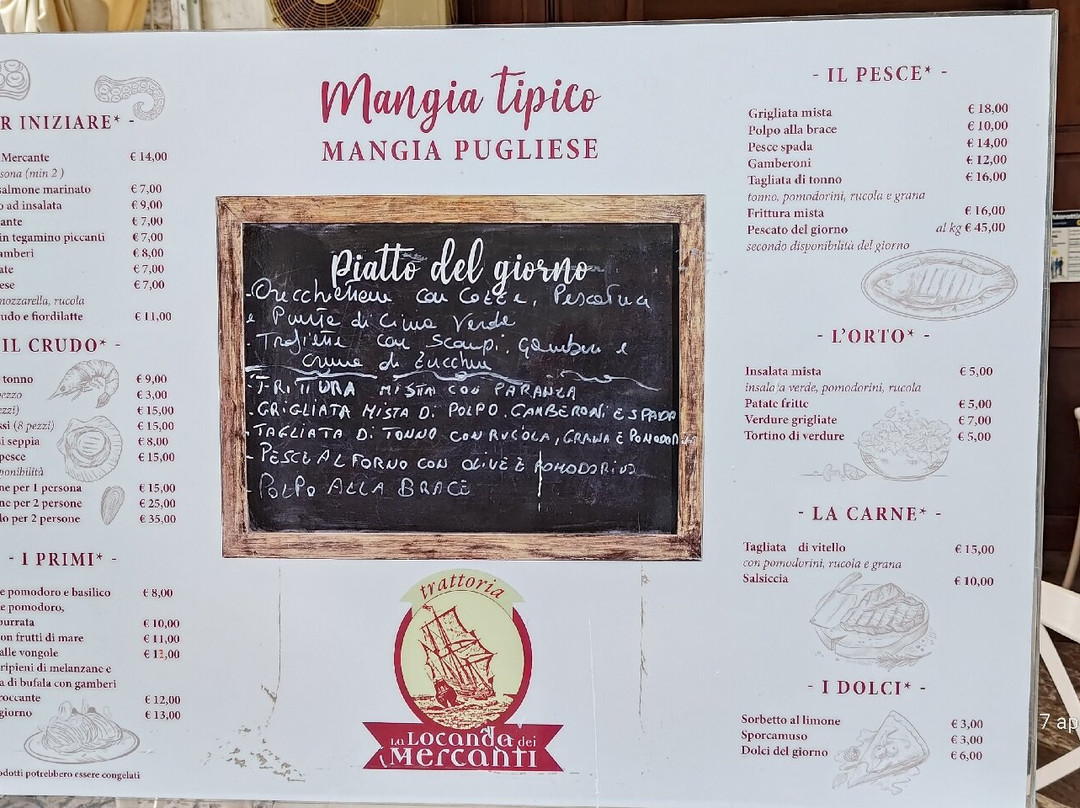 R INIZIARE* -
Mercante € 14,00
sona (min 2 )
salmone marinato € 7,00
o ad insalata € 9,00
ante € 7,00
in tegamino piccanti € 7,00
amberi € 8,00
ate € 7,00
ese € 7,00
mozzarella, rucola
udo e fiordilatte € 11,00
IL CRUDO* -
tonno € 9,00
pezzo € 3,00
ezzi) € 15,00
ssi (8 pezzi) € 15,00
i seppia € 8,00
pesce € 15,00
ponibilità
ne per 1 persona € 15,00
ne per 2 persone € 25,00
lo per 2 persone € 35,00
- I PRIMI* -
e pomodoro e basilico € 8,00
e pomodoro,
burrata € 10,00
on frutti di mare € 11,00
alle vongole € 12,00
ripieni di melanzane e
a di bufala con gamberi
roccante € 12,00
giorno € 13,00
odotti potrebbero essere congelati
Mangia tipico
MANGIA PUGLIESE
Piatto del giorno
-Orecchiette con Cozze, Pescatrice
e Punte di Cima Verde
- con Scampi, Gamberi e
Crema di Zucchine
- FRITTURA MISTA CON PARANZA
- GRIGLIATA MISTA DI POLPO, GAMBERONI E SPADA
- TAGLIATA DI TONNO CON RUCOLA, GRANA E
- PESCE AL FORNO CON OLIVE E POMODORINO
- POLPO ALLA BRACE
trattoria
La LOCANDA dei
MERCANTI
- IL PESCE* -
Grigliata mista € 18,00
Polpo alla brace € 10,00
Pesce spada € 14,00
Gamberoni € 12,00
Tagliata di tonno € 16,00
tonno, pomodorini, rucola e grana
Frittura mista € 16,00
Pescato del giorno al kg € 45,00
secondo disponibilità del giorno
- L'ORTO* -
Insalata mista € 5,00
insalata verde, pomodorini, rucola
Patate fritte € 5,00
Verdure grigliate € 7,00
Tortino di verdure € 5,00
- LA CARNE* -
Tagliata di vitello € 15,00
con pomodorini, rucola e grana
Salsiccia € 10,00
- I DOLCI* -
Sorbetto al limone € 3,00
Sporcamuso € 3,00
Dolci del giorno € 6,00
7 ap